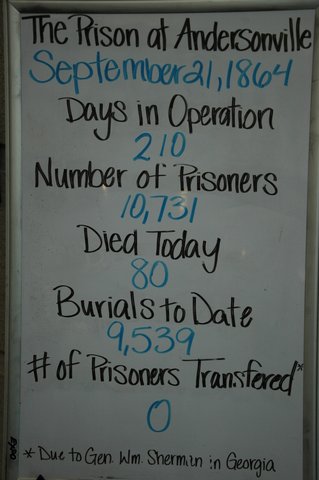 The Prison at Andersonville
September 21, 1864
Days in Operation
210
Number of Prisoners
10,731
Died Today
80
Burials to Date
9,539
# of Prisoners Transfered*
0
* Due to Gen. Wm. Sherman in Georgia